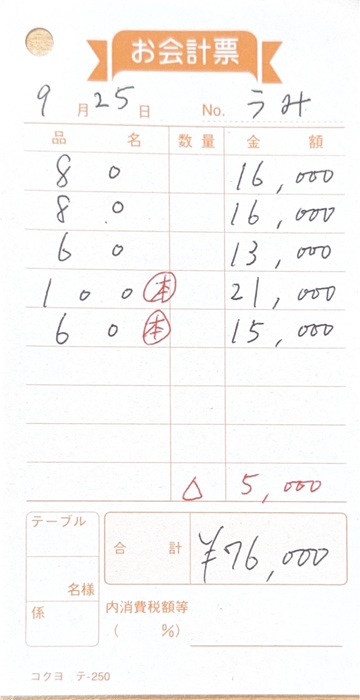 お会計票
9月25日 No. うみ
品名 数量 金額
80 16,000
80 16,000
60 13,000
100 本 21,000
60 本 15,000
△ 5,000
テーブル
名様
係
合計 ¥76,000
内消費税額等
( %)
コクヨ テ-250